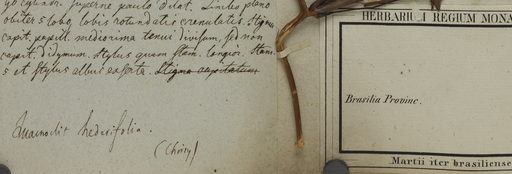 superne paulo dilat. Limbo plano
obiter 5 lobo, lobis rotundatis crenulatis. Stigma
capit. papill. mediorima tenui divisum, sed non
capit. didymum. Stylus quam stam. longior. Stam.
5 et stylus albus exserta. Stigma capitatum
Quamoclit hederifolia.
(Choisy)
HERBARIUM REGIUM MONA
Brasilia Provinc.
Martii iter brasiliense